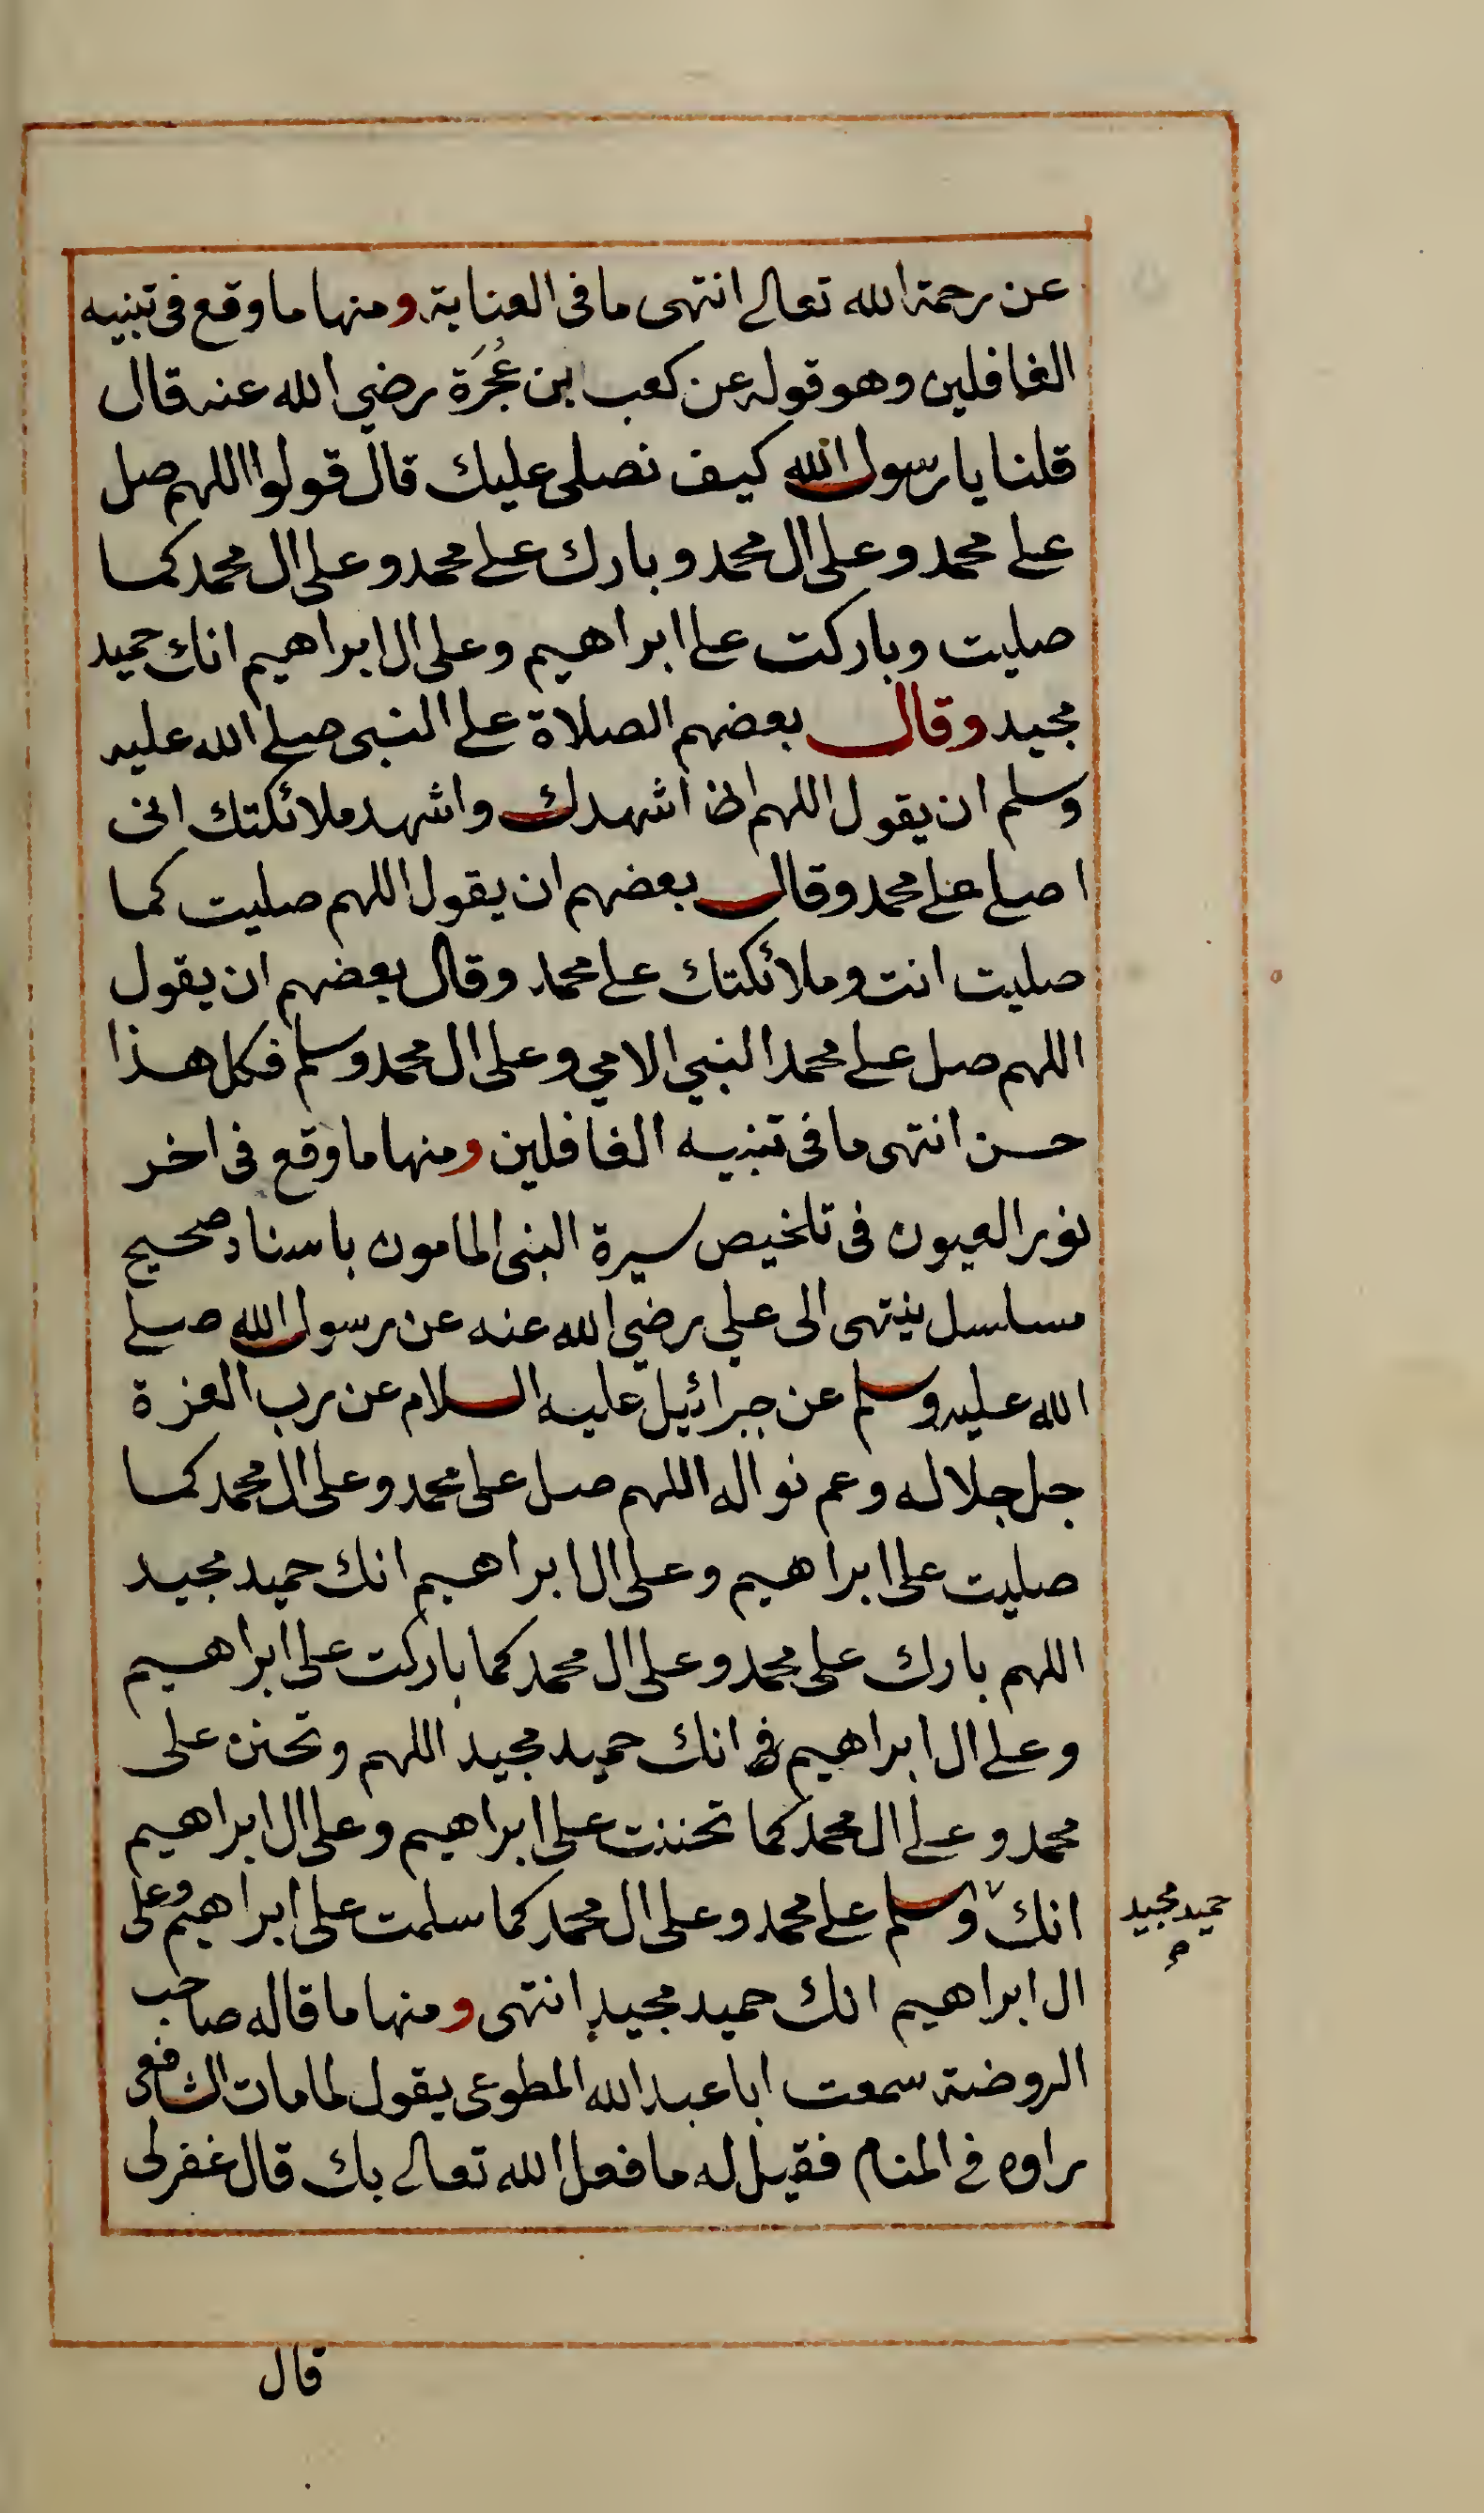 عن رحمة الله تعالے انتهى ما فى العناية ومنها ما وقع فى تنبيه
الغافلين وهو قوله عن كعب بن عُجَرَة رضي الله عنه قال
قلنا يا رسول الله كيف نصلى عليك قال قولوا اللهم صل
علے محمد وعلى ال محمد وبارك علے محمد وعلى ال محمد كما
صليت وباركت علے ابراهيم وعلى ال ابراهيم انك حميد
مجيد وقال بعضهم الصلاة علے النبى صلے الله عليه
وسلم ان يقول اللهم انى اشهدك واشهد ملائكتك انى
اصلے علے محمد وقال بعضهم ان يقول اللهم صليت كما
صليت انت وملائكتك علے محمد وقال بعضهم ان يقول
اللهم صل علے محمد النبي الامي وعلى ال محمد وسلم فكل هذا
حسن انتهى ما فى تنبيه الغافلين ومنها ما وقع فى اخر
نور العيون فى تلخيص سيرة النبى المامون باسناد صحيح
مسلسل ينتهى الى علي رضي الله عنه عن رسول الله صلے
الله عليه وسلم عن جبرائيل عليه السلام عن رب العزة
جل جلاله وعم نواله اللهم صل على محمد وعلى ال محمد كما
صليت على ابراهيم وعلى ال ابراهيم انك حميد مجيد
اللهم بارك على محمد وعلى ال محمد كما باركت على ابراهيم
وعلے ال ابراهيم انك حميد مجيد اللهم وتحنن على
محمد وعلے ال محمد كما تحننت على ابراهيم وعلى ال ابراهيم
انك وسلم علے محمد وعلى ال محمد كما سلمت على ابراهيم وعلى
حميد مجيد
ال ابراهيم انك حميد مجيد انتهى ومنها ما قاله صاحب
الروضة سمعت ابا عبد الله المطوعى يقول لما مات الشافعى
راوه فے المنام فقيل له ما فعل الله تعالے بك قال غفر لى
قال